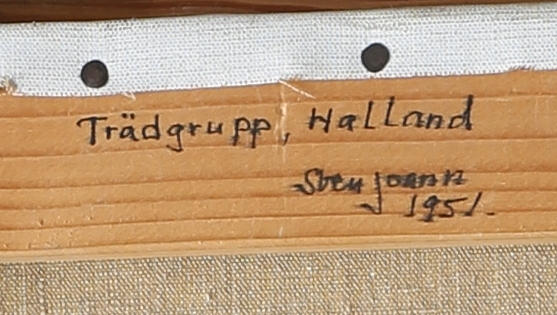 Trädgrupp, Halland
Sven Joann
1951.